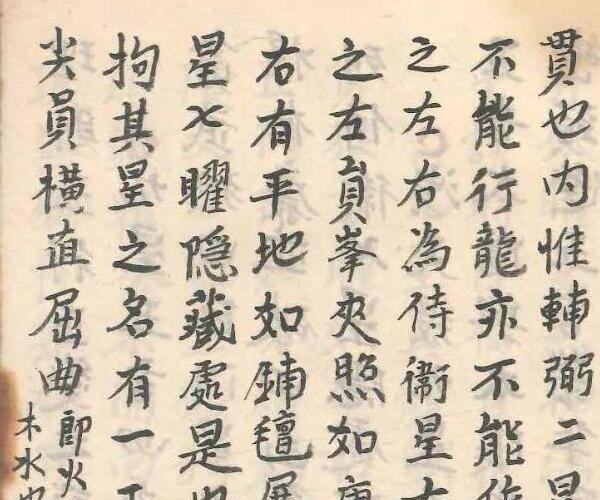 貫也内惟輔弼二星
不能行龍亦不能作
之左右為侍衛星
之左員峯夾照如
右有平地如鋪氊展
星七曜隱藏處是也
拘其星之名有一
尖員橫直屈曲即火
木水也